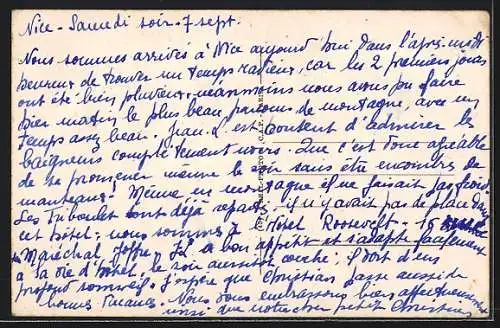 Nice - Samedi soir - 7 sept.
Nous sommes arrivés à Nice aujourd'hui dans l'après-midi
heureux de trouver un temps radieux, car les 2 premiers jours
ont été bien pluvieux, néanmoins nous avons pu faire
hier matin le plus beau parcours de montagne, avec un
temps assez beau. Jean. L. est content d'admirer les
baigneurs complètement noirs. Que c'est donc agréable
de se promener même le soir sans être encombrés de
manteaux! Même en montagne il ne faisait pas froid.
Les Tiboulet sont déjà repartis, il n'y avait pas de place dans
cet hôtel. nous sommes à l'Hôtel Roosevelt - 16
Maréchal Joffre. J.L a bon appétit et s'adapte facilement
à la vie d'hôtel, le soir aussitôt couché, il dort d'un
profond sommeil. J'espère que Christian passe aussi de
bonnes vacances. Nous vous embrassons bien affectueusement
ainsi que notre cher petit Christian